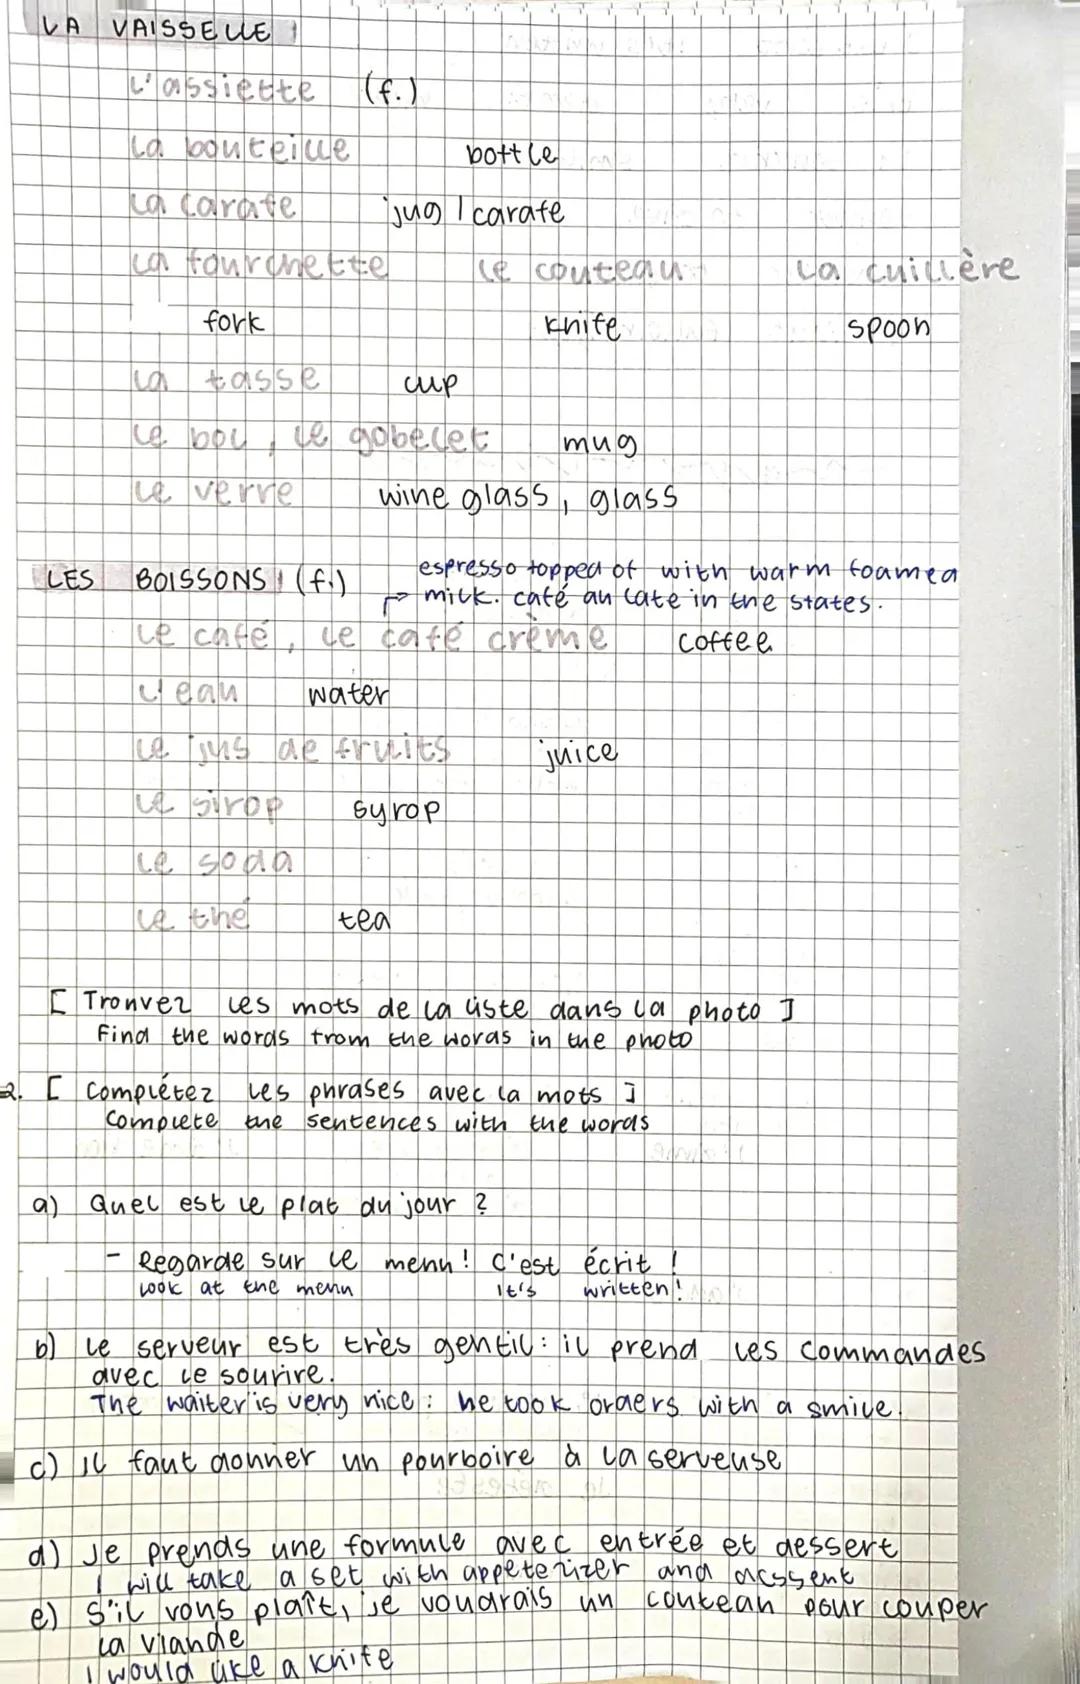 LA VAISSELLE
L'assiette (f.)
La bouteille bottle
La carafe jug / carafe
La fourchette le couteau La cuillère
fork knife spoon
La tasse cup
Le bol, le gobelet mug
Le verre wine glass, glass
LES BOISSONS (f.) espresso topped of with warm foamed
→ milk. café au late in the states.
Le café, le café crème coffee
L'eau water
Le jus de fruits juice
Le sirop syrop
Le soda
Le thé tea
[ Trouvez les mots de la liste dans la photo ]
Find the words from the words in the photo
2. [ Complétez les phrases avec la mots ]
Complete the sentences with the words
a) Quel est le plat du jour ?
- Regarde sur le menu! C'est écrit !
Look at the menu It's written!
b) Le serveur est très gentil: il prend les commandes
avec le sourire.
The waiter is very nice: he took orders with a smile.
c) Il faut donner un pourboire à la serveuse
d) Je prends une formule avec entrée et dessert
I will take a set with and
e) S'il vous plaît, je voudrais un couteau pour couper
la viande
I would like a knife